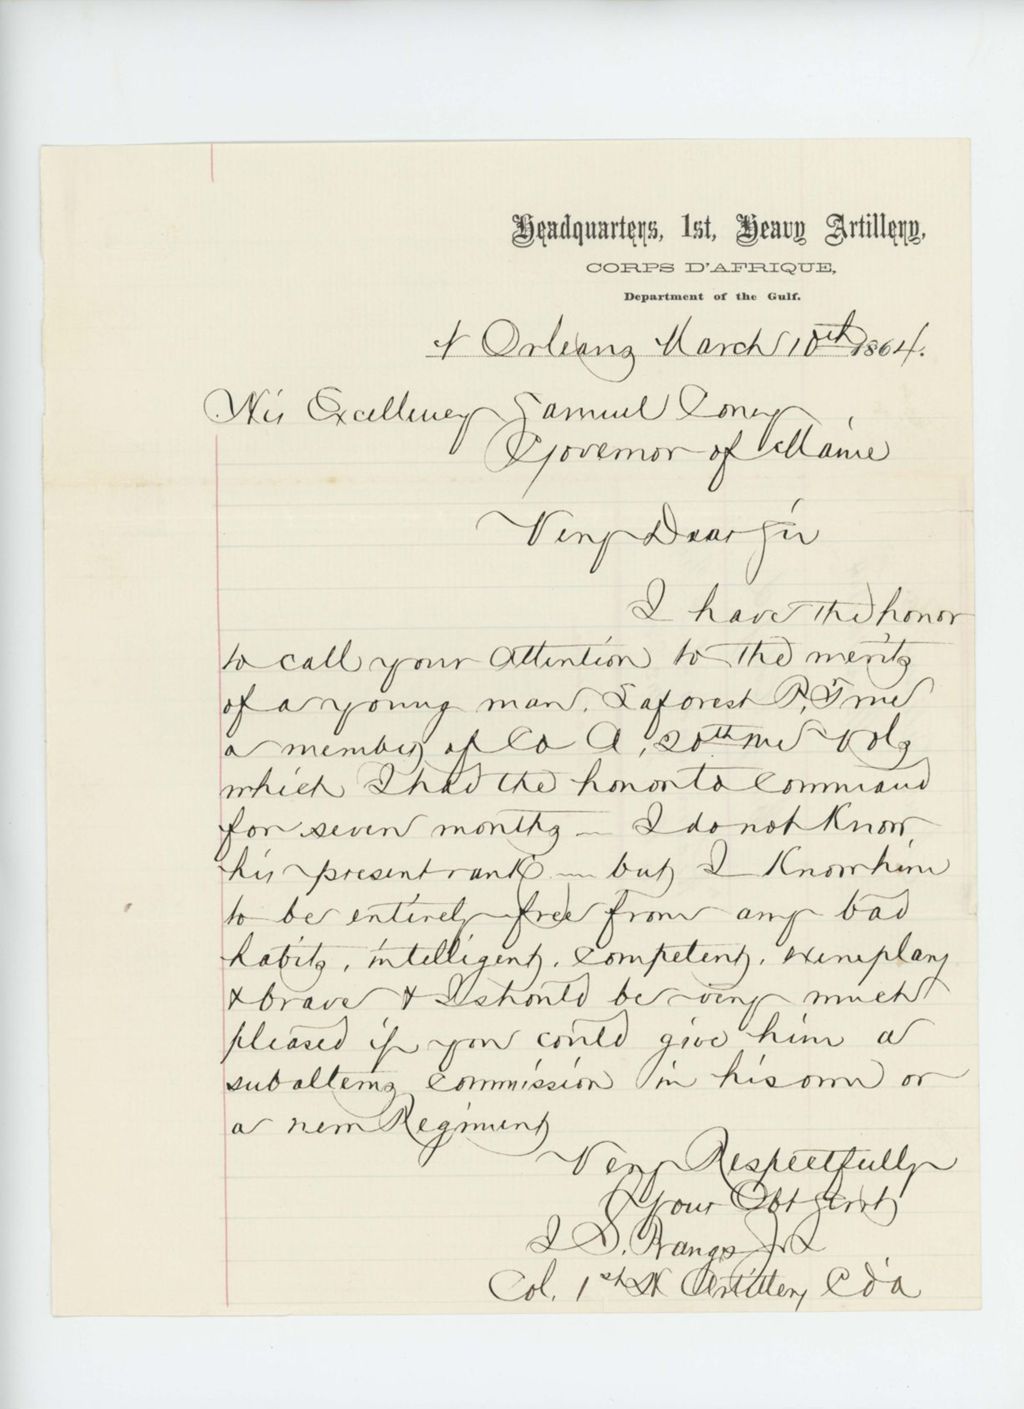 Headquarters, 1st, Heavy Artillery,
CORPS D'AFRIQUE,
Department of the Gulf.
N Orleans March 10th 1864.
His Excellency Samuel Cony,
Governor of Maine
Very Dear Sir
I have the honor
to call your Attention to the merits
of a young man, Laforest P. True
a member of Co A, 20th Me Vols
which I had the honor to Command
for seven months — I do not Know
his present rank — but I Know him
to be entirely free from any bad
habits, intelligent, Competent, exemplary
& brave & I should be very much
pleased if you could give him a
subalterns Commission in his own or
a new Regiment
Very Respectfully
Your Obt Servt
I S. Bangs Jr
Col. 1st H Artillery C d'a